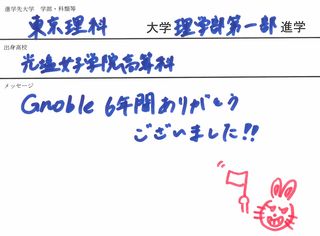 進学先大学 学部・学科等
東京理科 大学 理学部第一部 進学
出身高校
光塩女子学院高等科
メッセージ
Gnoble 6年間ありがとう
ございました!!